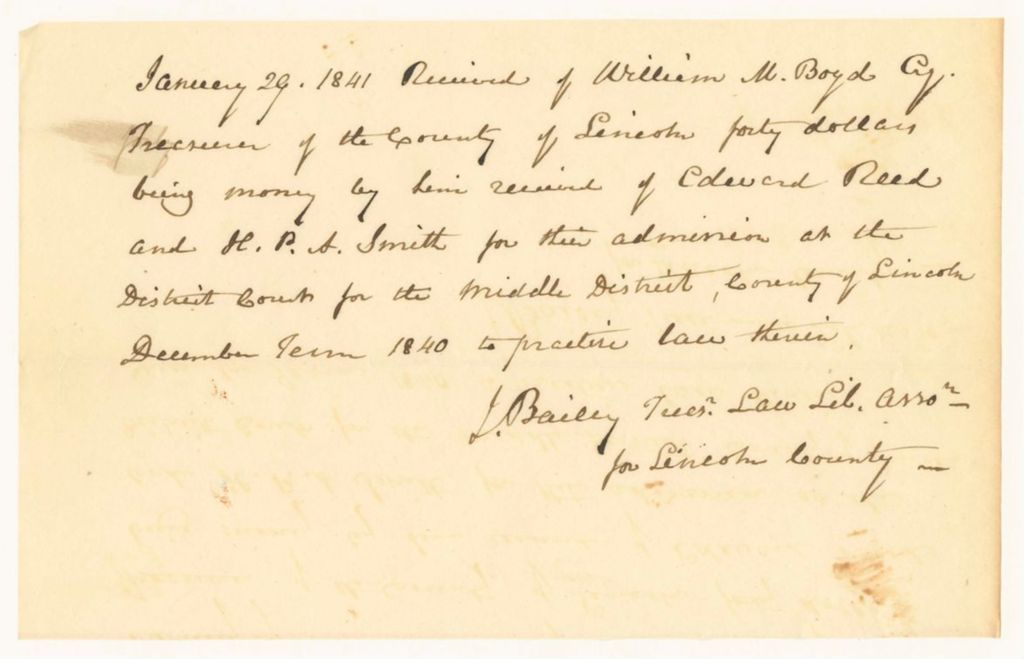 January 29. 1841 Received of William M. Boyd Esq.
Treasurer of the County of Lincoln forty dollars
being money by him received of Edward Reed
and H. P. A. Smith for their admission at the
District Court for the Middle District, County of Lincoln
December Term 1840 to practise law therein.
J. Bailey Treasr. Law Lib. Asson
for Lincoln County